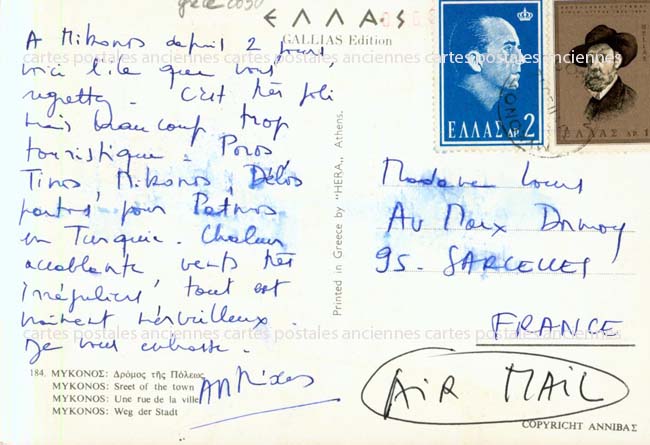 ΕΛΛΑΣ
GALLIAS Edition
A Mikonos depuis 2 jours,
voici l'île que vous
regrettez. C'est très joli
mais beaucoup trop
touristique. Poros
Tinos, Mikonos, Délos
pour Patmos
en Turquie. Chaleur
accablante vents très
irréguliers tout est
vraiment merveilleux.
Je vous embrasse.
cartes postales anciennes cartes postales anciennes cartes postales anciennes
ΕΛΛΑΣ ΔΡ. 2
ΕΛΛΑΣ ΔΡ. 1
Printed in Greece by "HERA,, Athens.
Madame
Au Marx Dormoy
95 - SARCELLES
FRANCE
AIR MAIL
cartes postales anciennes cartes postales anciennes cartes postales anciennes
184. ΜΥΚΟΝΟΣ: Δρόμος τῆς Πόλεως
MYKONOS: Sreet of the town
MYKONOS: Une rue de la ville
MYKONOS: Weg der Stadt
COPYRICHT ΑΝΝΙΒΑΣ